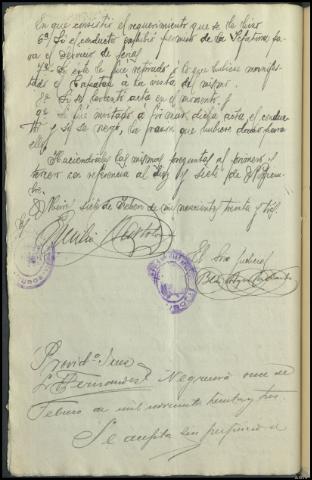 en que consistió el requerimiento que se le hizo
6º Si el conductor exhibió permiso de la Jefatura pa-
ra el servicio de feria
7º Si este le fué retirado ó lo que hubiese manifes-
tado el Capataz a la vista del mismo.
8º Si se levantó acta en el momento y
9º Si fué invitado a firmar dicha acta el conduc-
tor y si se negó, la causa que hubiere dado para
ello.
Haciendoles las mismas preguntas al primero y
tercero con referencia al diez y siete de
siete de Febrero de mil novecientos treinta y tres.
El Srio Judicial
Providª Juez
Sr Fernandez Negreira once de
Febrero de mil novecientos treinta y tres.
Se acepta sin perjuicio